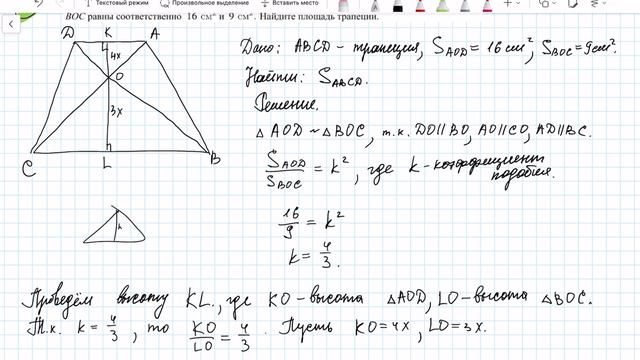 Текстовый режим Произвольное выделение Вставить место
BOC равны соответственно 16 см² и 9 см². Найдите площадь трапеции.
D K A
4x
O
3x
C L B
h
Дано: ABCD – трапеция, S_AOD = 16 см², S_BOC = 9 см².
Найти: S_ABCD.
Решение.
△AOD ~ △BOC, т.к. DO∥BO, AO∥CO, AD∥BC.
S_AOD / S_BOC = k², где k – коэффициент
подобия.
16/9 = k²
k = 4/3.
Проведём высоту KL, где KO – высота △AOD, LO – высота △BOC.
Т.к. k = 4/3, то KO/LO = 4/3. Пусть KO = 4x, LO = 3x.